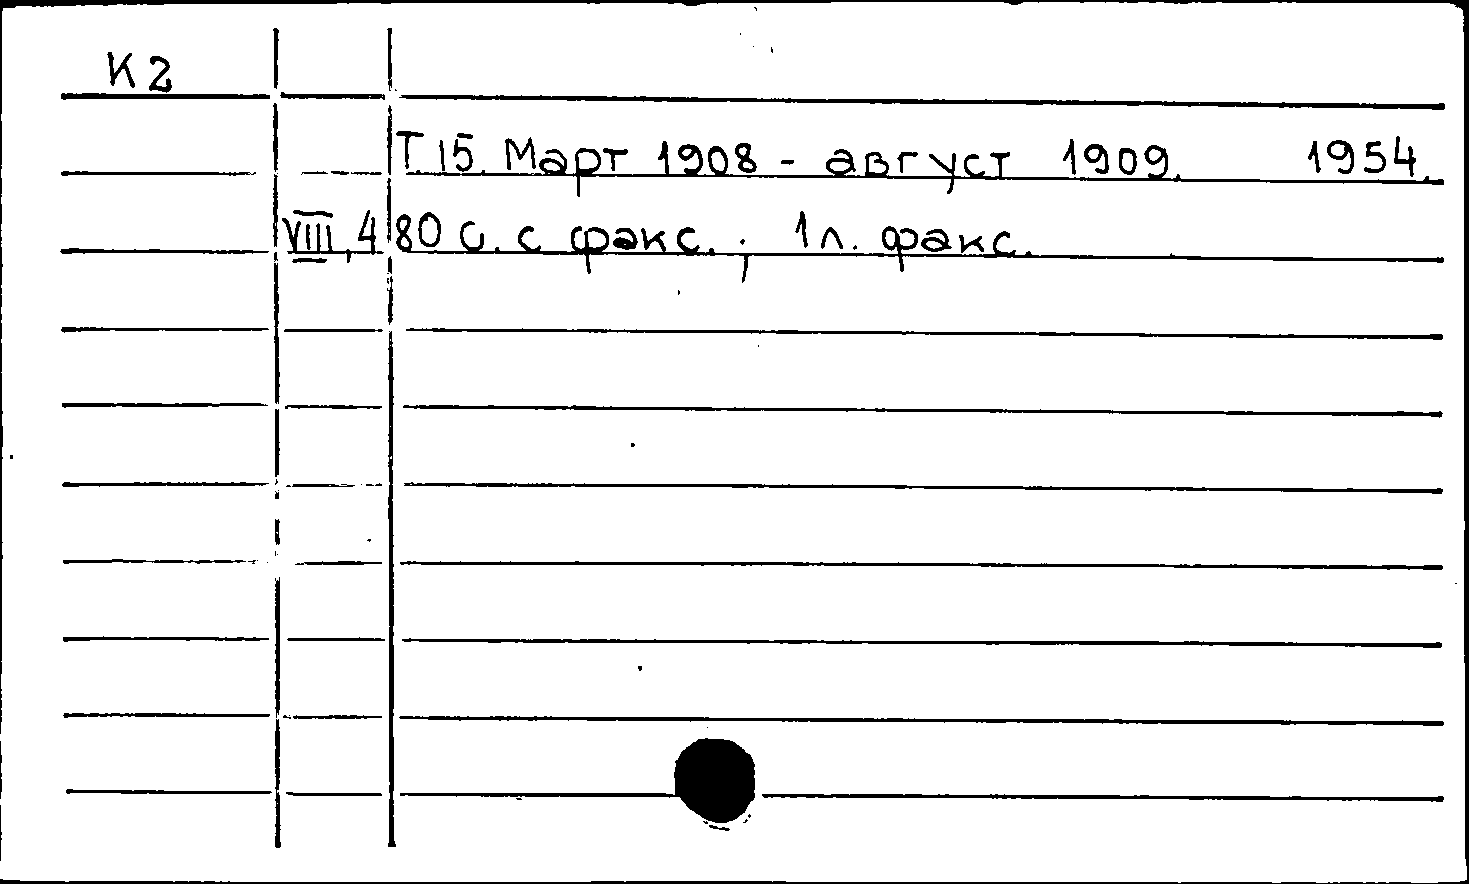 К2
Т. 15. Март 1908 - август 1909. 1954.
VIII, 480 с. с факс. ; 1 л. факс.